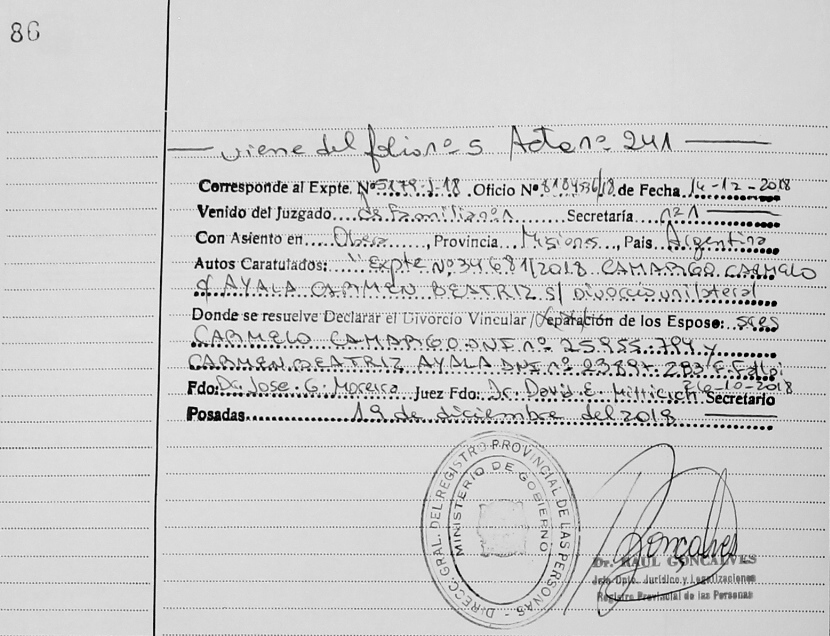 86
viene del folio nº 5 Acta nº 241
Corresponde al Expte. Nº5179-J-18 .Oficio Nº 810456/18 de Fecha 14-12-2018
Venido del Juzgado....de familia nº1......Secretaría nº1
Con Asiento en....Oberá......, Provincia...Misiones..., Pais..Argentina
Autos Caratulados: "Expte Nº34681/2018 CAMARGO CARMELO
c/ AYALA CARMEN BEATRIZ s/ Divorcio unilateral
Donde se resuelve Declarar el Divorcio Vincular/Separación de los Esposo: sres
CARMELO CAMARGO DNI nº 25.955.794 y
CARMEN BEATRIZ AYALA DNI nº 283/ F. Fallo:
26-10-2018
Fdo: Dr. Jose. G. Moreira Juez Fdo: Dr. David E. Secretario
Posadas..........19 de diciembre del 2018
DIRECC. GRAL. DEL REGISTRO PROVINCIAL DE LAS PERSONAS
MINISTERIO DE GOBIERNO
Gonçalves
Dr. RAUL GONCALVES
Jefe Dpto. Jurídico y Legalizaciones
Registro Provincial de las Personas